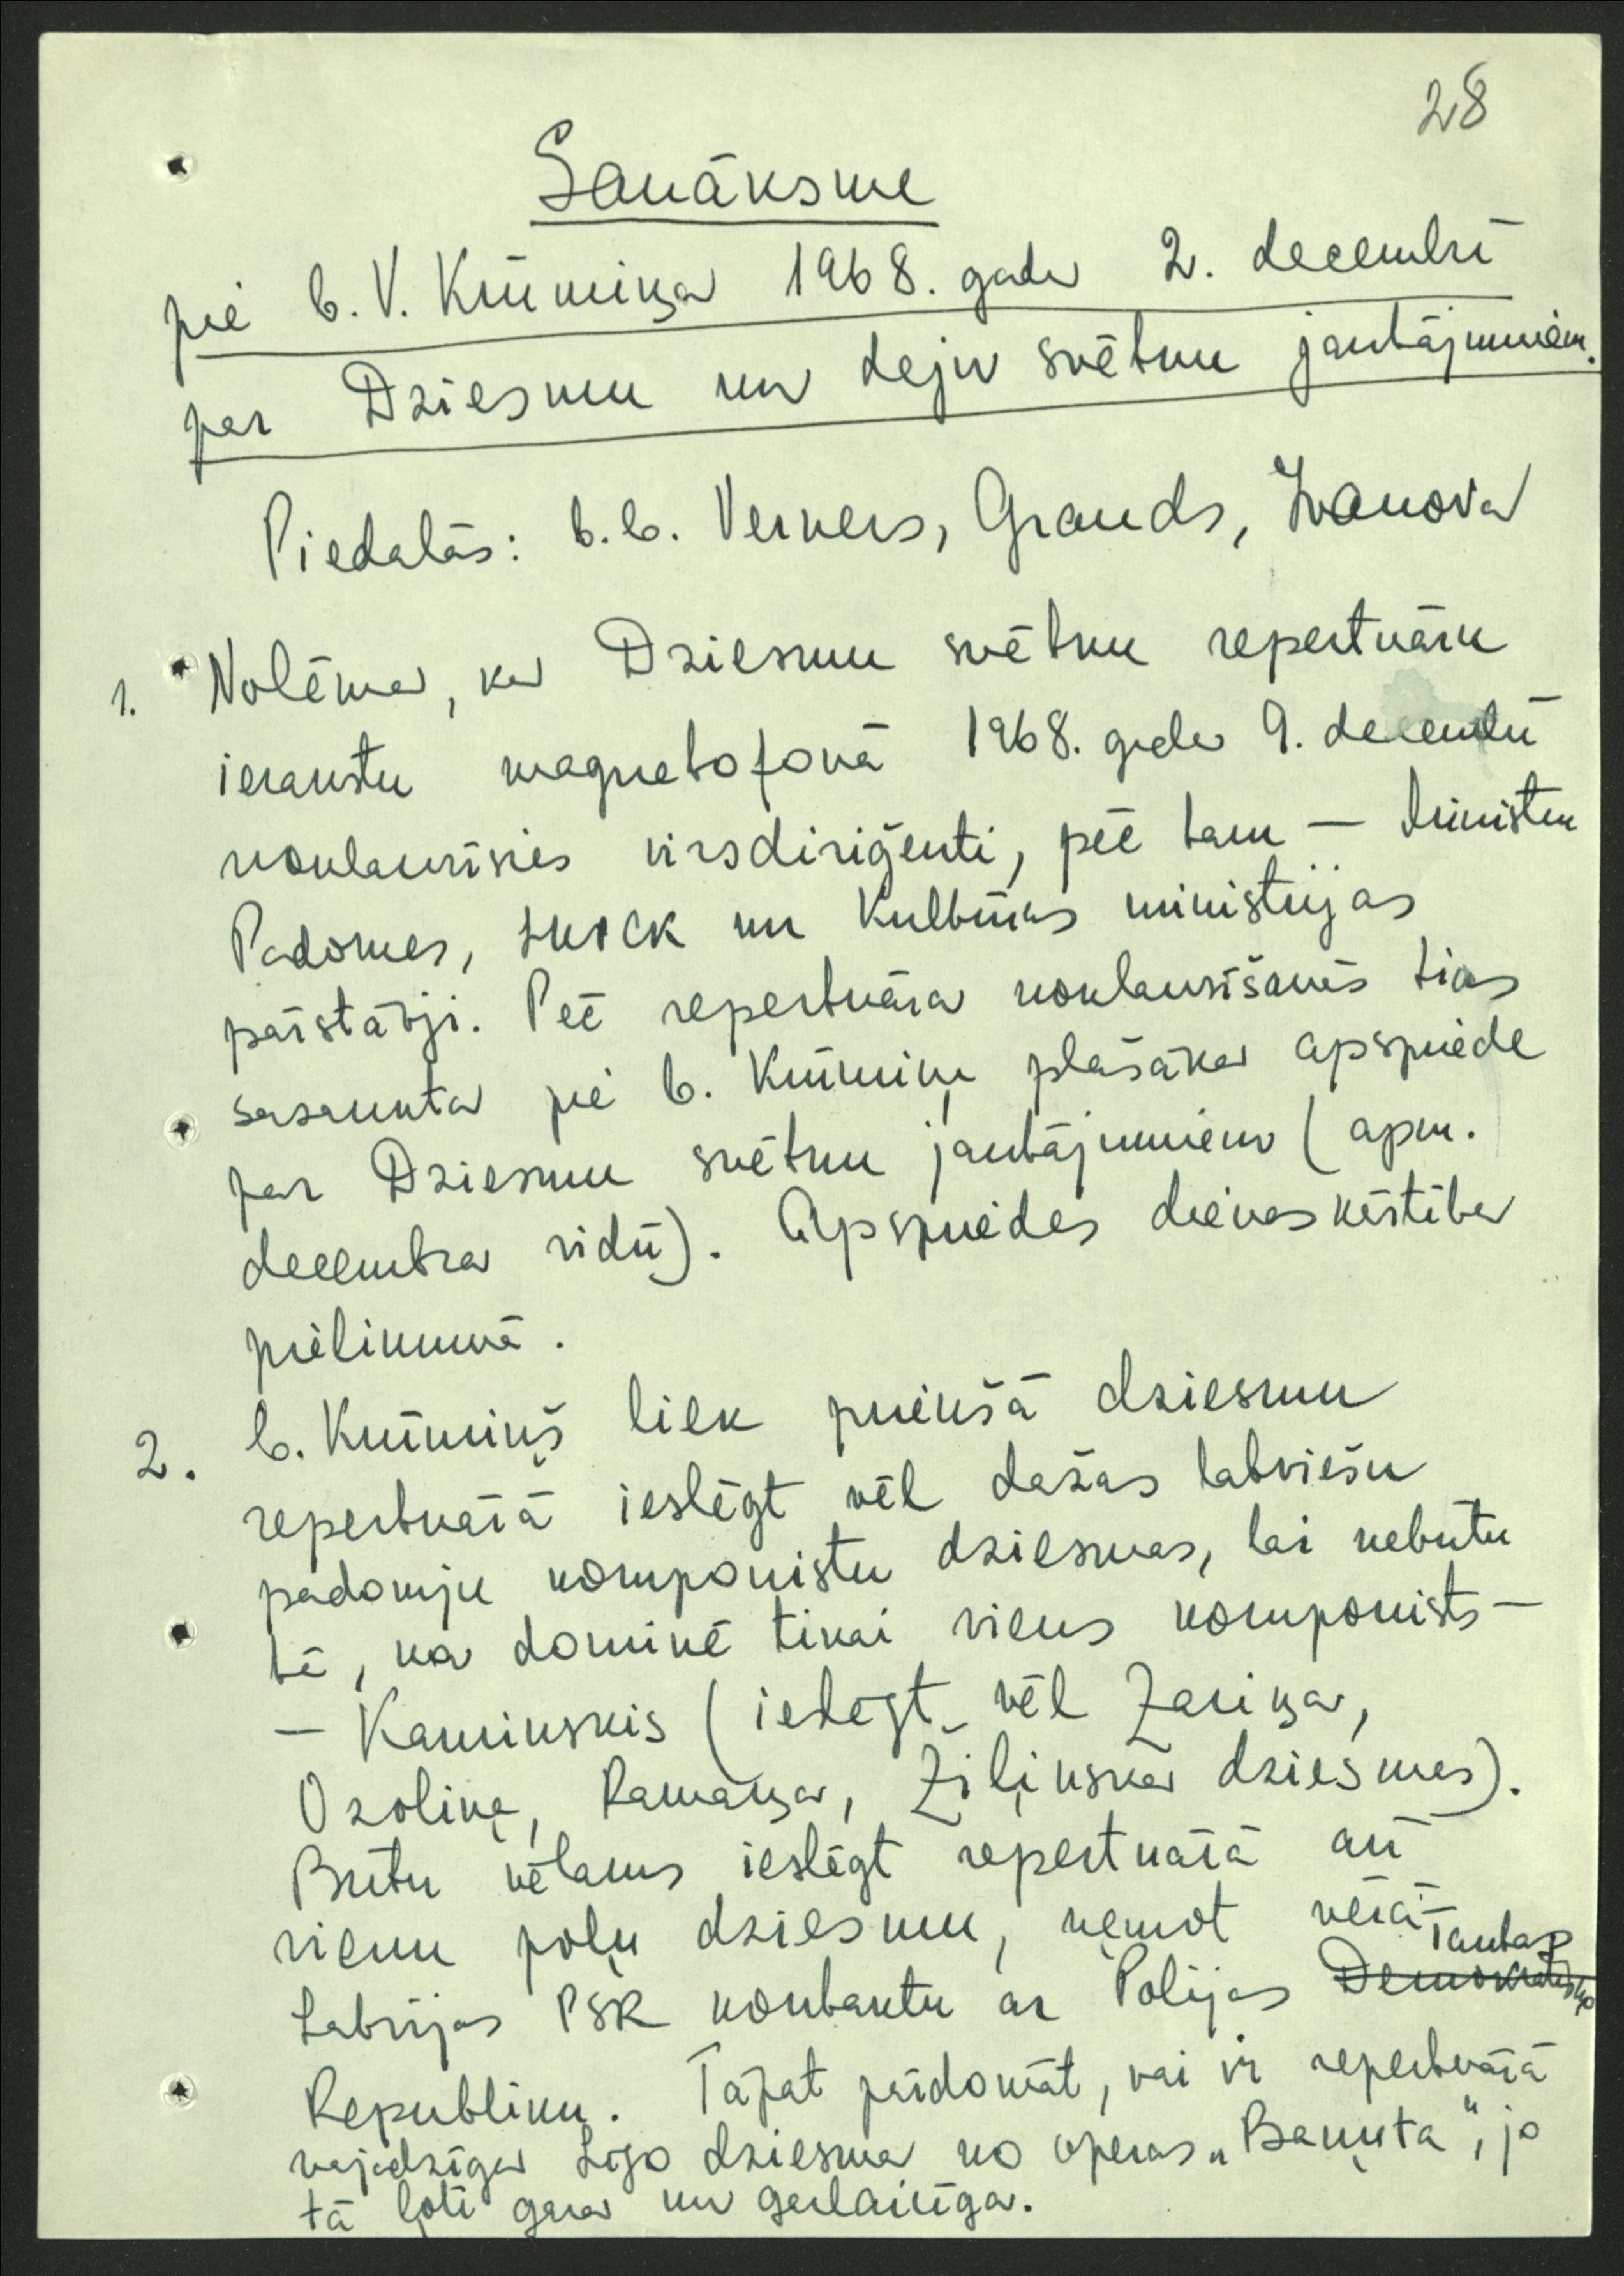 28
Sanāksme
pie b. V. Krūmiņa 1968. gada 2. decembrī
par Dziesmu un deju svētku jautājumiem.
Piedalās: b.b. Verners, Grauds, Ivanova
1. Nolēma, ka Dziesmu svētku repertuāru
ierakstu magnetofonā 1968. gada 9. decembrī
noklausīsies virsdiriģenti, pēc tam — Ministru
Padomes, LKPCK un Kultūras ministrijas
pārstāvji. Pēc repertuāra noklausīšanās tiks
sasaukta pie b. Krūmiņa plašāka apspriede
par Dziesmu svētku jautājumiem (apm.
decembra vidū). Apspriedes dienas kārtība
pielikumā.
2. b. Krūmiņš liek priekšā dziesmu
repertuārā ieslēgt vēl dažas latviešu
padomju komponistu dziesmas, lai nebūtu
tā, ka dominē tikai viens komponists —
— Kaminskis (ieslēgt vēl Zariņa,
Ozoliņa, Ramaņa, Žiļinska dziesmas).
Būtu vēlams ieslēgt repertuārā arī
vienu poļu dziesmu, ņemot vērā
Latvijas PSR kontaktu ar Polijas Demokrātisko Tautas
Republiku. Tāpat pārdomāt, vai ir repertuārā
vajadzīga Līgo dziesma no operas „Baņuta", jo
tā ļoti gara un garlaicīga.